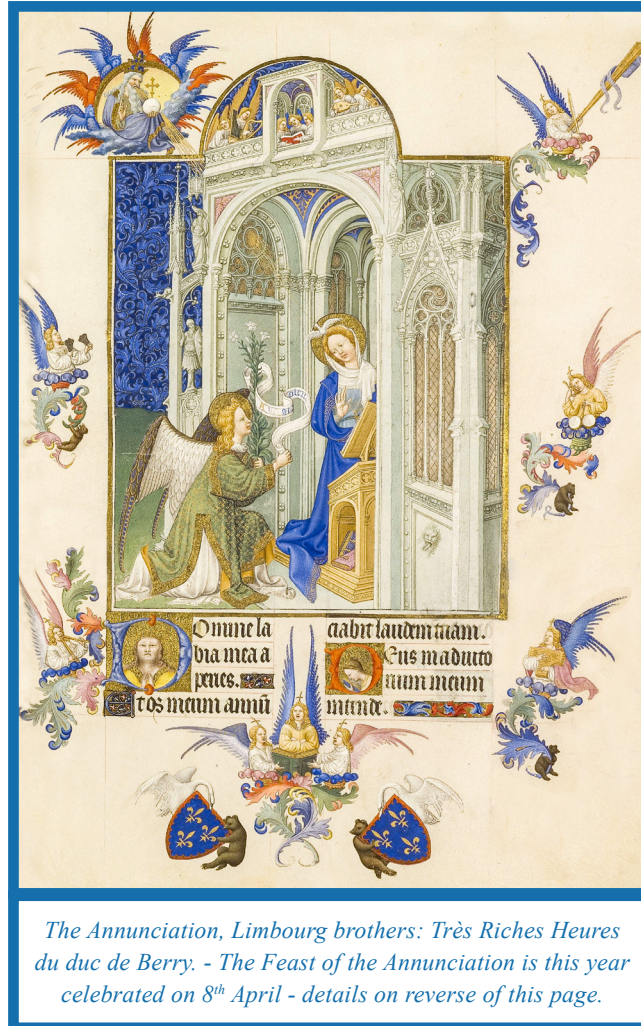 Domine la
bia mea a
peries.
Et os meum annū
ciabit laudem tuam.
Deus in adiuto
rium meum
intende.
The Annunciation, Limbourg brothers: Très Riches Heures
du duc de Berry. - The Feast of the Annunciation is this year
celebrated on 8th April - details on reverse of this page.